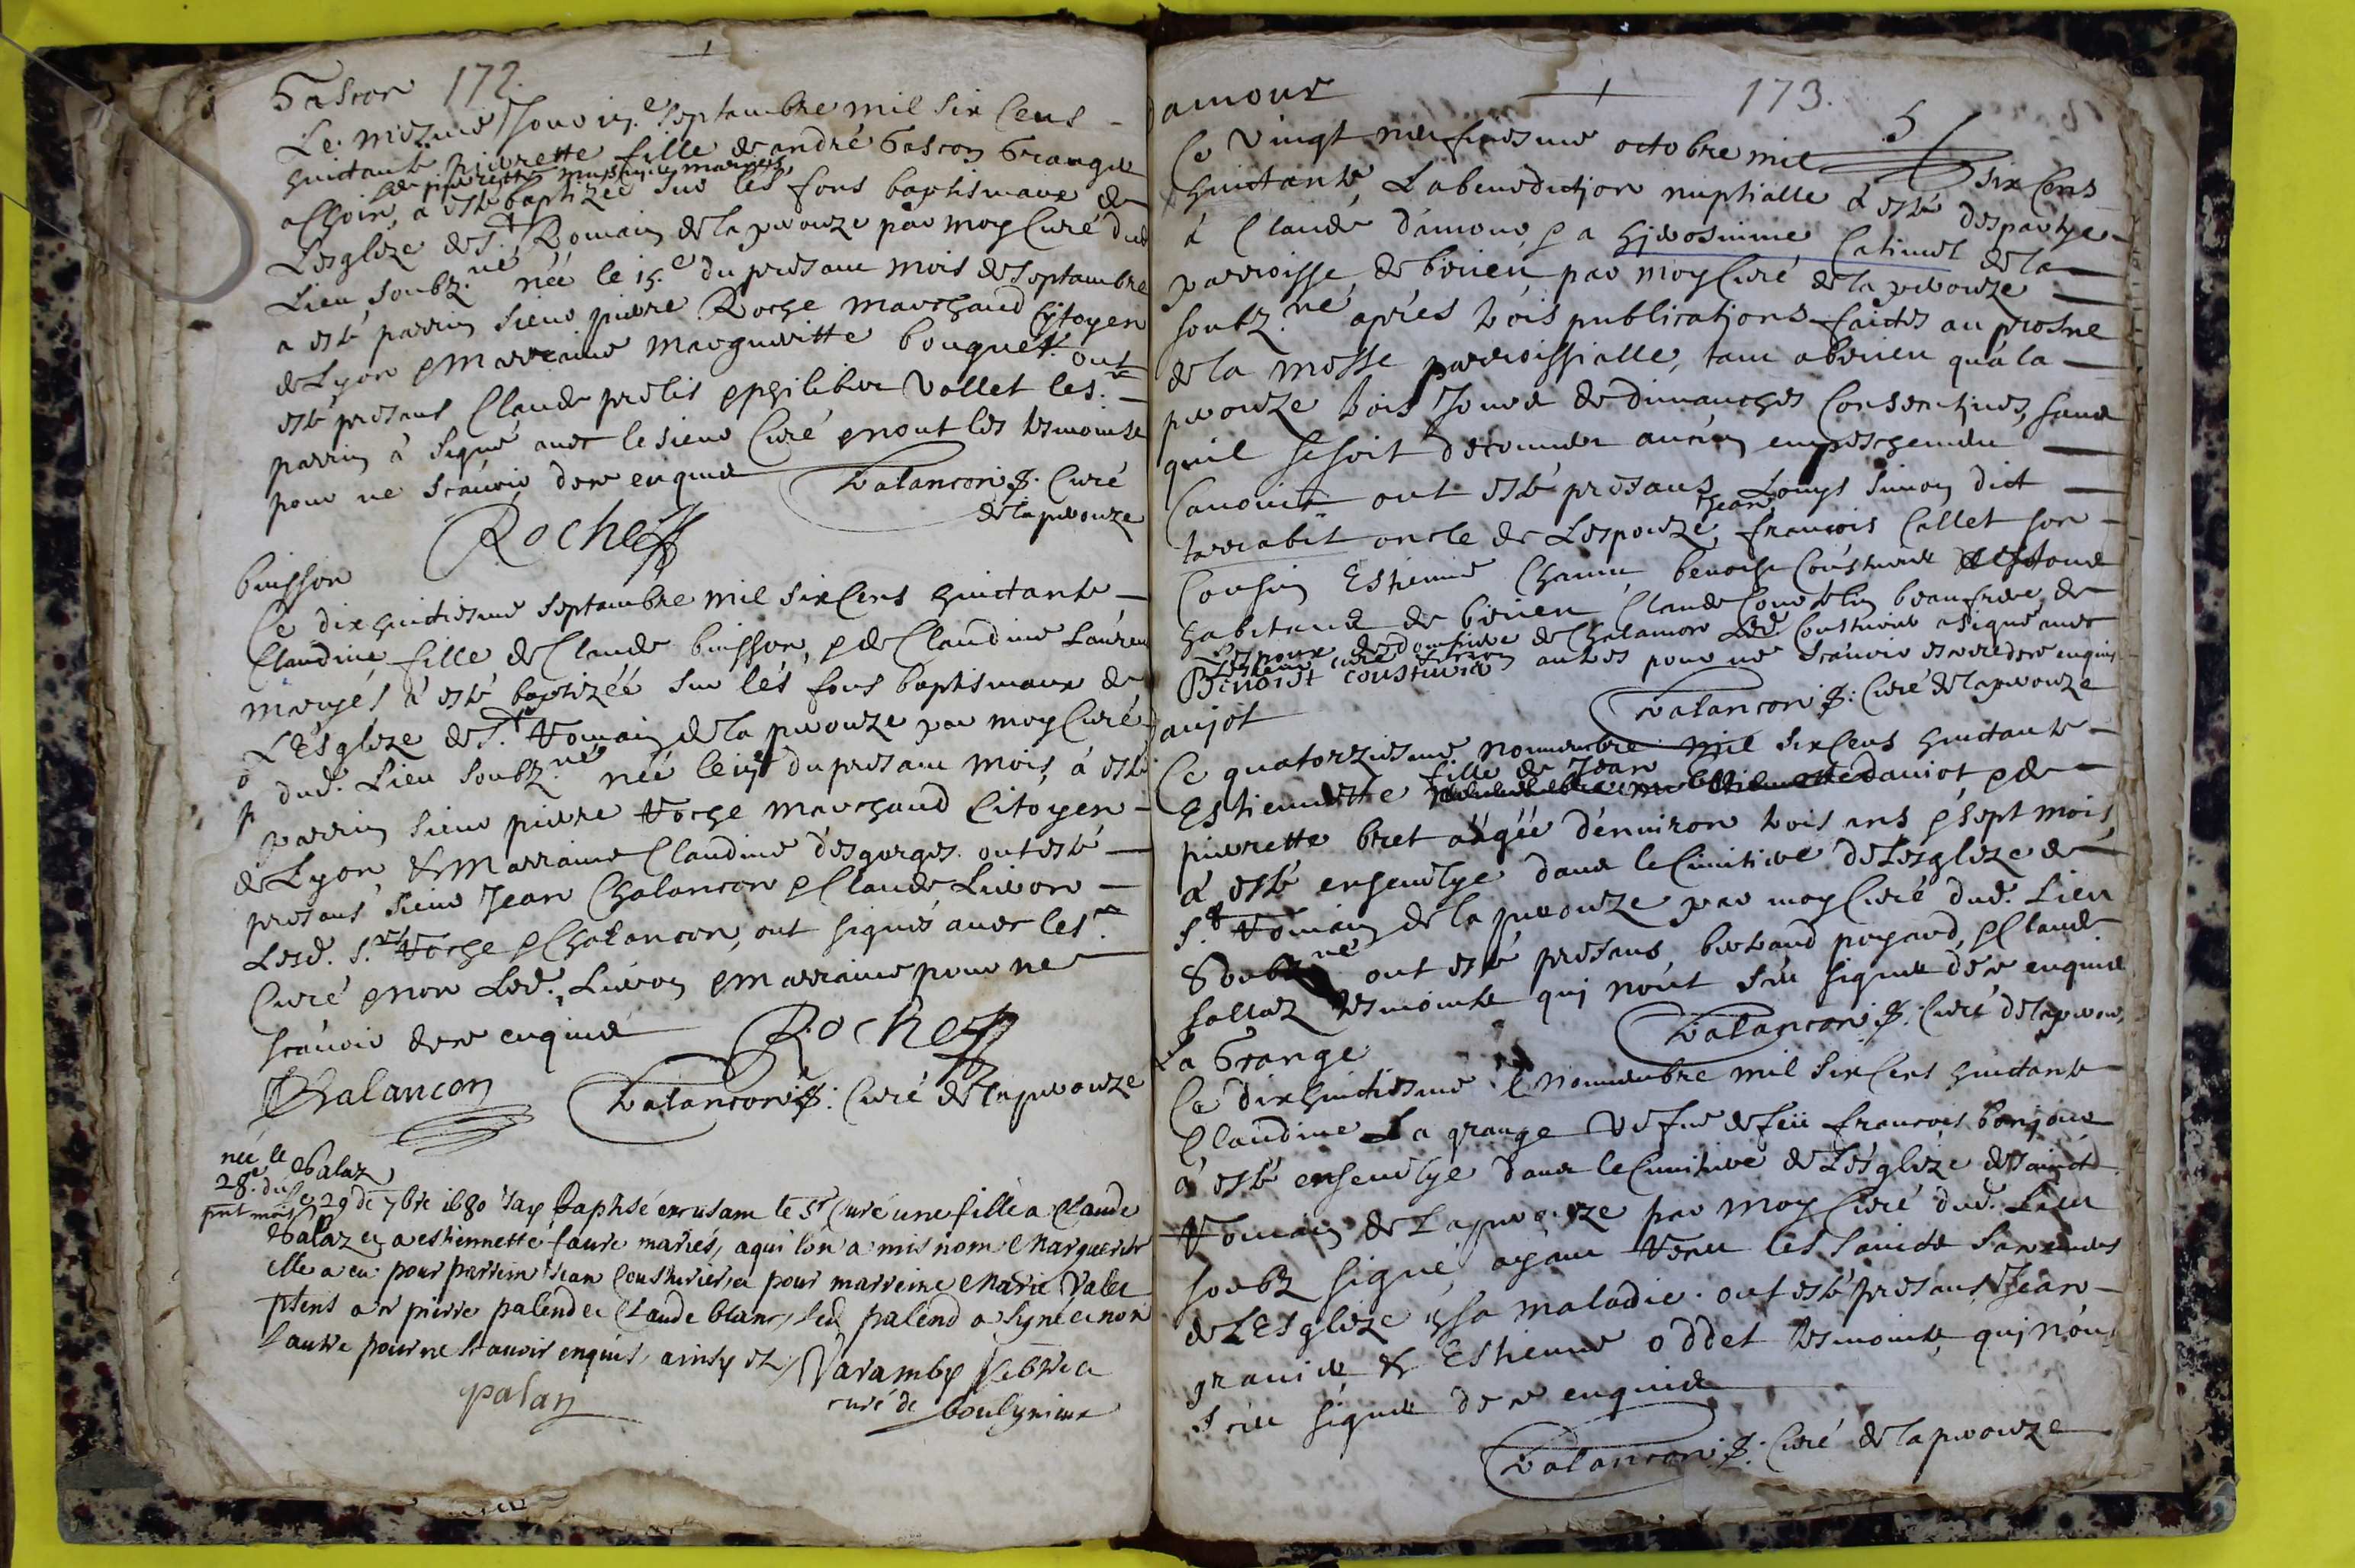 Gascon 172.
Le mesme Jour septambre mil six Cens
huictante pierrette fille de andré Gascon Granger
& de pierrette maryes
a esté baptizee sur les fons baptismaux de
Lesglize de St. Romain de la perouze par moy Curé dud
Lieu soubz.né née le 15.e du presant mois de septambre
a esté parrin sieur pierre Roche marchand Citoyen
de Lyon & marraine margueritte bouquet. ont
esté presans Claude prelis & philibert Vallet les.
parrin à signé avec le sieur Curé & nont les tesmoints
pour ne scavoir de ce enquis
Valancon p. Curé
de la perouze
Roche
buisson
Ce dixhuictiesme septambre mil six Cens huictante
Claudine fille de Claude buisson, & de Claudine Lauren
maryés à esté baptizéé sur lés fons baptismaux de
L'Esglize de St. Romain de la perouze par moy Curé
dud. Lieu soubz.né née le du presant mois, à esté
parrin sieur pierre Roche marchand Citoyen
de Lyon & Marraine Claudine desgorges ont esté
presans sieur Jean Chalancon & Claude Livron
Lesd. Srs Roche & Chalancon, ont signés avec les.
Curé & non Led. Livron & marraine pour ne
scavoir de ce enquis
Roche
Chalancon
Valancon p. Curé de la perouze
née le
28.e du
pnt mois
Balaz
Le 29 de 7bre 1680 Jay baptisé en lieu le Sr Curé une fille a Claude
Balaz et a estiennette faure mariés, a qui l'on a mis nom Marguerite
elle a eu pour parrein Jean Cousturier, et pour marreine Marie Valet
ptens pierre palend et Claude blanc, led palend a signé et non
l'autre pour ne scavoir enquis, ainsy
Varamby
curé de boulynieux
palan
damour 173.
5
Ce vingt neufiesme octobre mil six Cens
huictante, La benediction nuptialle à esté despartye
à Claude d'amour & a hierosinime Catimel de la
parroisse de birieu par moy Curé de la perouze
soubz.né aprés trois publications faictes au prosne
de la messe parroissialle, tant a birieu qu'a la
perouze trois Jours de dimanches Consecutives, sans
quil se soit decouvert aucun empeschement
Canonict ont esté presans Louys simon dict
tarrabit oncle de Lespouze, Jean francois Callet son
Cousin Estienne Chanu, benoist Cousturier & tous
habitans de birieu Claude beaufrere de
Lespoux de Chalamon Led. Cousturier a signé avec
Benoist Cousturier autres pour ne scavoir de ce enquis
Valancon p. Curé de la perouze
aujot
Ce quatorziesme nouvembre mil six Cens huictante
Estiennette fille de Jean daujot & de
pierrette bret aâgée d'environ trois ans & sept mois
à esté ensevelye dans le Cimitiere de Lesglize de
St. Romain de la perouze par moy Curé dud. Lieu
Soubz.né ont esté presans, bertrand poyard, & Claude
sallaz tesmoints qui n'ont sceu signer de ce enquis
Valancon p. Curé de la perouze
La Grange
Ce dixhuictiesme nouvembre mil six Cens huictante
Claudine La grange Vefve de feu francois bonjour
à esté ensevelye dans le Cimitiere de L'ésglize de Sainct
Romain de La perouze par moy Curé dud. Lieu
soubz signé, ayant receu les saincts sacrements
de L'Esglize en sa maladie. ont esté presans Jean
granier & Estienne oddet tesmoints, qui n'ont
sceu signer de ce enquis
Valancon p. Curé de la perouze